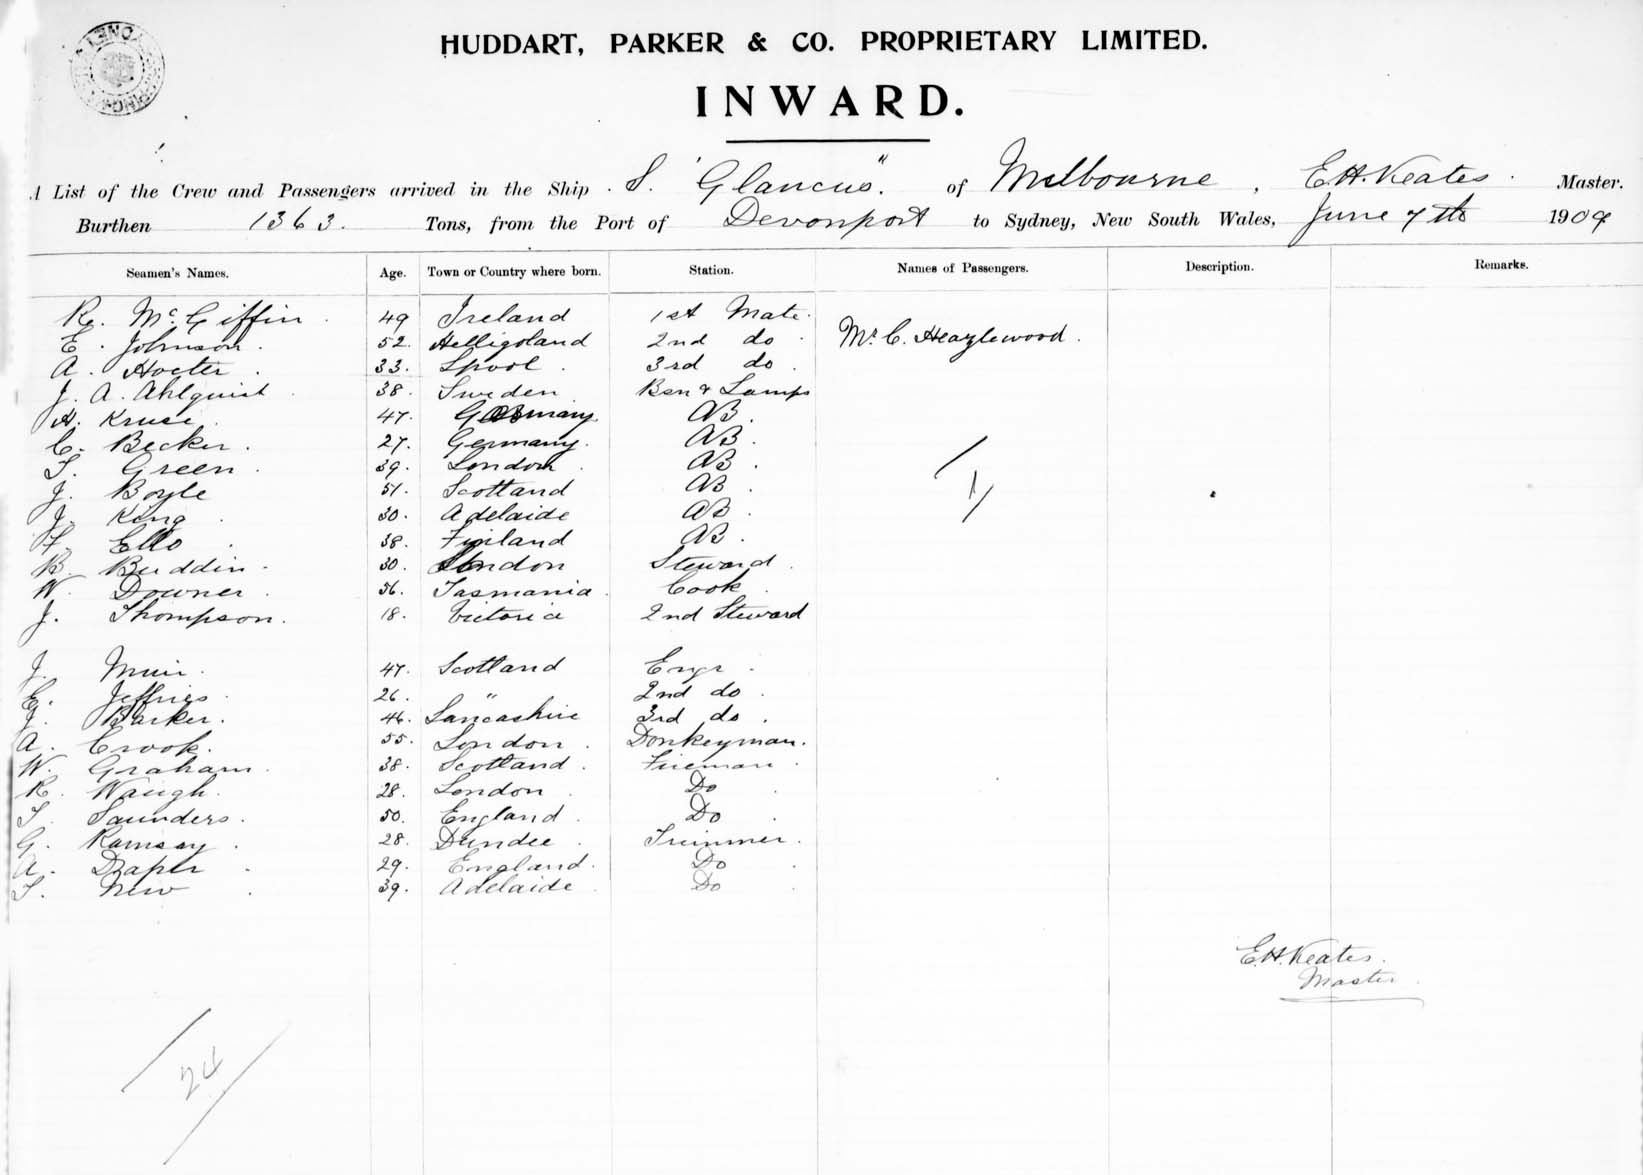 HUDDART, PARKER & CO. PROPRIETARY LIMITED.
INWARD.
A List of the Crew and Passengers arrived in the Ship S. "Glaucus" of Melbourne, E.H. Keates. Master.
Burthen 1363. Tons, from the Port of Devonport to Sydney, New South Wales, June 7th 1909
Seamen's Names. Age. Town or Country where born. Station. Names of Passengers. Description. Remarks.
R. McGiffin 49 Ireland 1st Mate
E. Johnson 52 Helligoland 2nd do Mr. C. Heazlewood.
A. Hocter 33. Lpool 3rd do
J. A. Ahlquist 38. Sweden Bsn & Lamps
H. Kruse 47. Germany AB
C. Becker 27. Germany. AB.
T. Green 39. London AB.
J. Boyle 51. Scotland AB
J. King 30. Adelaide AB.
F. Ello 38. Finland AB.
B. Buddin 30. London Steward.
W. Downer 56. Tasmania Cook
J. Thompson. 18. Victoria 2nd Steward
J. Muir 47. Scotland Engr
E. Jeffries 26. " 2nd do
J. Barker. 46. Lancashire 3rd do.
A. Crook. 55. London Donkeyman.
W. Graham 38. Scotland Fireman
R. Waugh 28. London Do
T. Saunders. 50. England Do
G. Ramsay 28. Dundee Trimmer
A. Draper 29. England Do
T. New 39. Adelaide Do
1
E.H. Keates.
Master
24